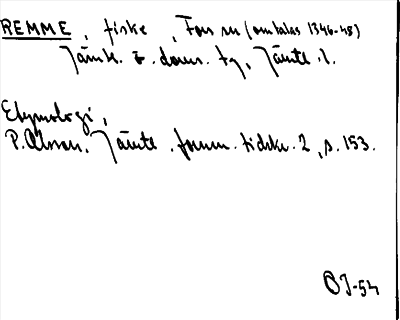 REMME, fiske, Fors sn (omtalas 1346-48)
Jämtl. ö. doms. tg, Jämtl. l.
Etymologi,
P. Olsson, Jämtl. fornm. tidskr. 2, s. 153.
OJ-54